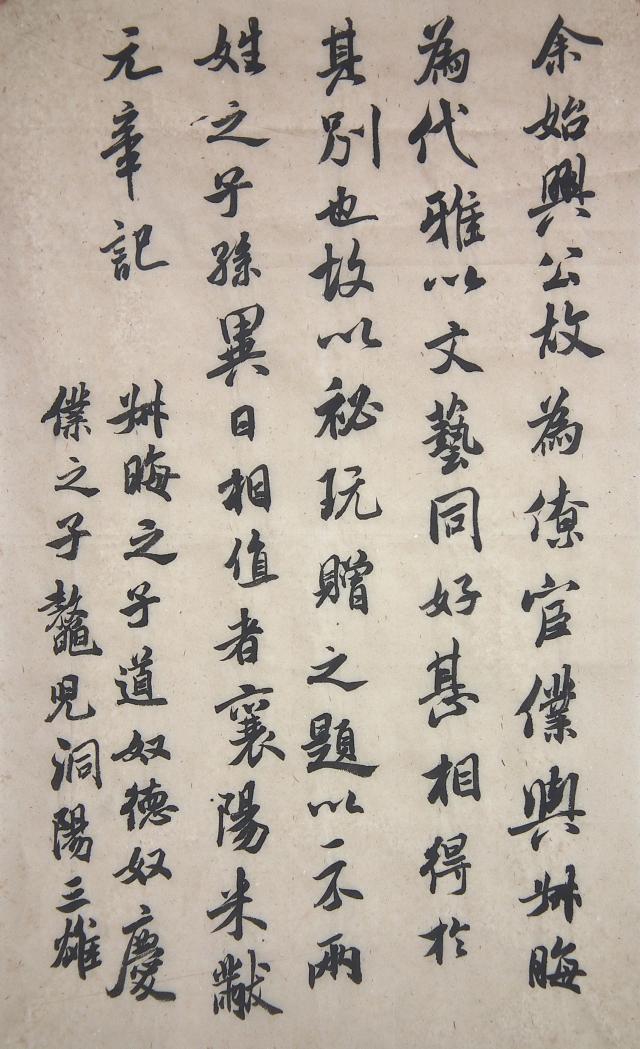 余始興公故為僚宦僕與叔晦
為代雅以文藝同好甚相得於
其別也故以祕玩贈之題以示兩
姓之子孫異日相值者襄陽米黻
元章記
叔晦之子道奴德奴慶
僕之子鼇兒洞陽三雄